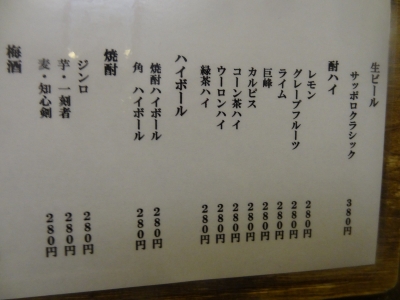 生ビール
サッポロクラシック 380円
酎ハイ
レモン 280円
グレープフルーツ 280円
ライム 280円
巨峰 280円
カルピス 280円
コーン茶ハイ 280円
ウーロンハイ 280円
緑茶ハイ 280円
ハイボール
焼酎ハイボール 280円
角 ハイボール 280円
焼酎
ジンロ 280円
芋・一刻者 280円
麦・知心剣 280円
梅酒